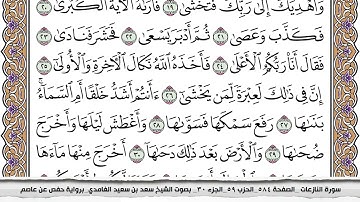 وَأَهْدِيَكَ إِلَىٰ رَبِّكَ فَتَخْشَىٰ ١٩ فَأَرَىٰهُ ٱلْآيَةَ ٱلْكُبْرَىٰ ٢٠
فَكَذَّبَ وَعَصَىٰ ٢١ ثُمَّ أَدْبَرَ يَسْعَىٰ ٢٢ فَحَشَرَ فَنَادَىٰ ٢٣
فَقَالَ أَنَا۠ رَبُّكُمُ ٱلْأَعْلَىٰ ٢٤ فَأَخَذَهُ ٱللَّهُ نَكَالَ ٱلْآخِرَةِ وَٱلْأُولَىٰٓ ٢٥
إِنَّ فِى ذَٰلِكَ لَعِبْرَةً لِّمَن يَخْشَىٰٓ ٢٦ ءَأَنتُمْ أَشَدُّ خَلْقًا أَمِ ٱلسَّمَآءُ ۚ
بَنَىٰهَا ٢٧ رَفَعَ سَمْكَهَا فَسَوَّىٰهَا ٢٨ وَأَغْطَشَ لَيْلَهَا وَأَخْرَجَ
ضُحَىٰهَا ٢٩ وَٱلْأَرْضَ بَعْدَ ذَٰلِكَ دَحَىٰهَآ ٣٠ أَخْرَجَ مِنْهَا مَآءَهَا
سورة النازعات _الصفحة ٥٨٤ _الحزب ٥٩ _الجزء ٣٠ _ بصوت الشيخ سعد بن سعيد الغامدي _برواية حفص عن عاصم